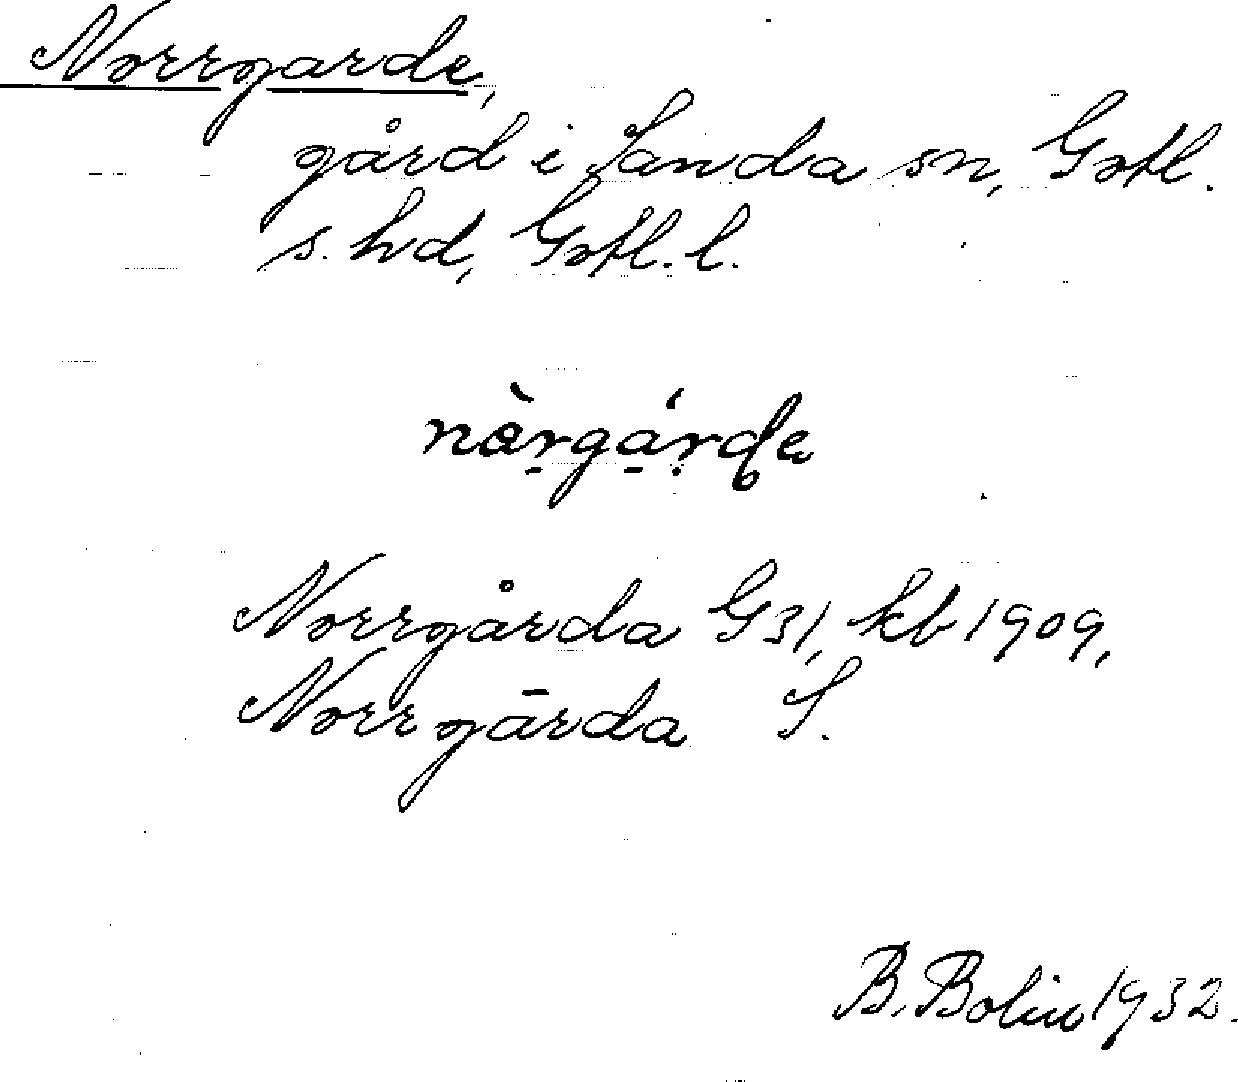 Norrgarde,
gård i Sanda sn, Gotl.
s. hd, Gotl. l.
Norrgårda G31, kb 1909,
Norrgārda S.
B. Bolin 1932.